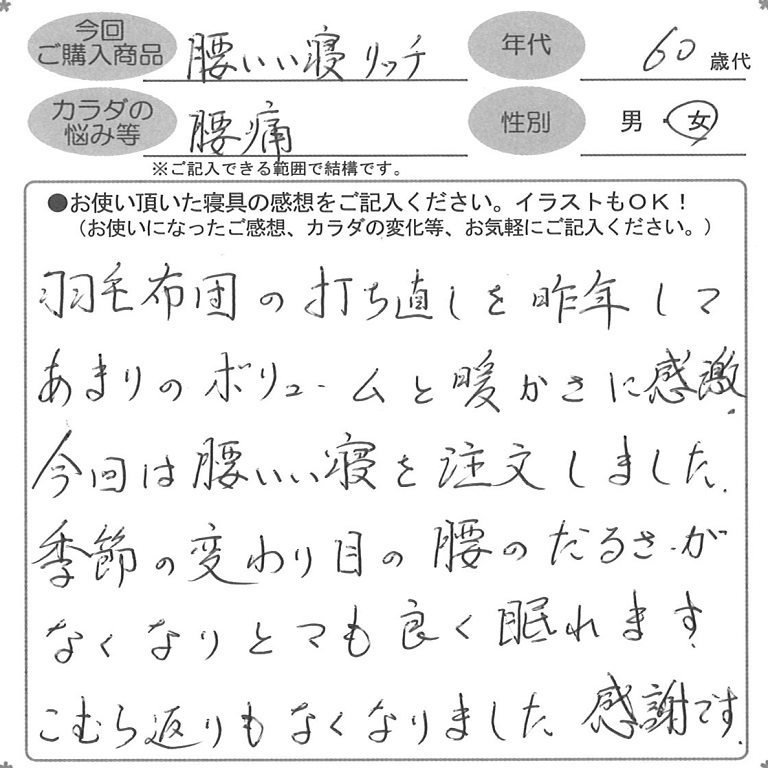 今回
ご購入商品
腰いい寝 リッチ
年代
60 歳代
カラダの
悩み等
腰痛
性別
男・女
※ご記入できる範囲で結構です。
●お使い頂いた寝具の感想をご記入ください。イラストもOK！
（お使いになったご感想、カラダの変化等、お気軽にご記入ください。）
羽毛布団の打ち直しを昨年して
あまりのボリュームと暖かさに感激.
今回は腰いい寝を注文しました.
季節の変わり目の腰のだるさが
なくなりとても良く眠れます.
こむら返りもなくなりました. 感謝です.